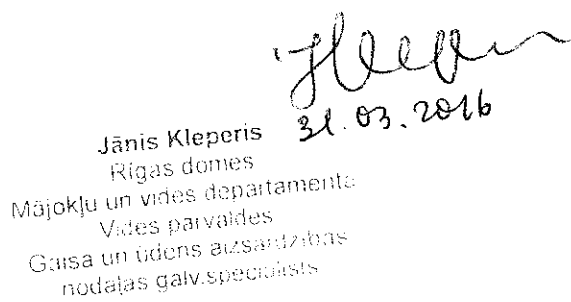 31.03.2016
Jānis Kleperis
Rīgas domes
Mājokļu un vides departamenta
Vides pārvaldes
Gaisa un ūdens aizsardzības
nodaļas galv.speciālists